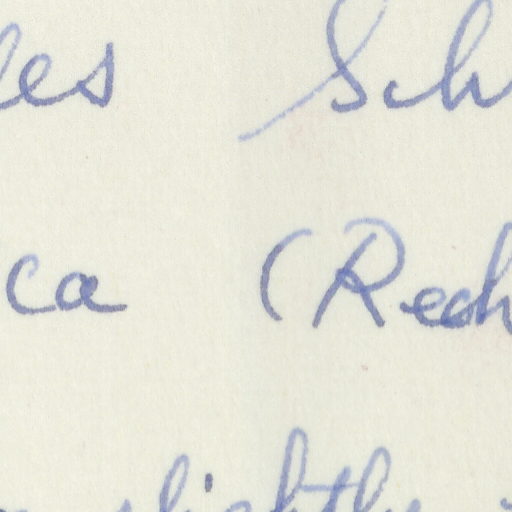 les Sch
ca (Rech
slightly